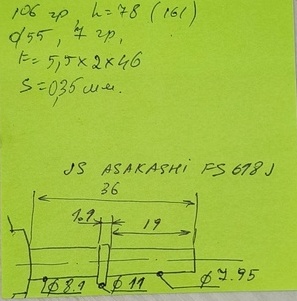 106 гр, h=78 (161)
d55, 7 гр,
F=5,5×2×46
S=0,35 мм.
JS ASAKASHI FS618J
36
1.9
19
φ8.1
φ11
φ7.95